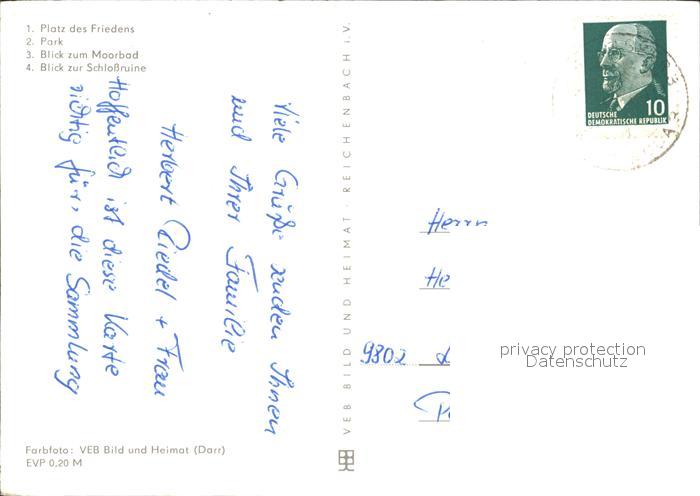 1. Platz des Friedens
2. Park
3. Blick zum Moorbad
4. Blick zur Schloßruine
Viele Grüße senden Ihnen
und Ihrer Familie
Herbert Riedel + Frau
Hoffentlich ist diese Karte
richtig für, die Sammlung
Farbfoto: VEB Bild und Heimat (Darr)
EVP 0,20 M
VEB BILD UND HEIMAT · REICHENBACH i. V.
10
DEUTSCHE
DEMOKRATISCHE REPUBLIK
Herrn
He
9802
privacy protection
Datenschutz